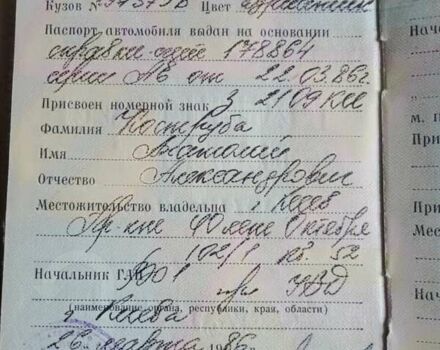 Кузов № Цвет
Паспорт автомобиля выдан на основании
справки-счет 178864
серии АБ от 22.03.86г.
Присвоен номерной знак З 2109 КИ
Фамилия Коструба
Имя Анатолий
Отчество Александрович
Местожительство владельца г. Киев
Пр-кт 40 лет Октября
102/1 кв. 52
Начальник ГАИ УВД
(наименование органа, республики, края, области)
г. Киева
26 марта 86
Нача
номер
М. п.
При
При
Нача